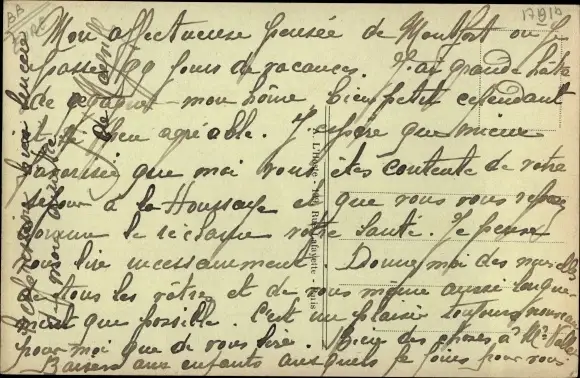 Mon affectueuse pensée de Montfort où je
passe 99 jours de vacances. J'ai grande hâte
de regagner mon home, bien petit cependant
et si peu agréable. J'espère que mieux
favorisée que moi vous êtes contente de votre
séjour à la Houssaye et que vous vous reposez
comme le réclame votre santé. Je pense
vous lire incessamment. Donnez moi des nouvelles
de tous les vôtres et de vous même aussi longue-
ment que possible. C'est un plaisir toujours nouveau
pour moi que de vous lire. Bien des choses à Mr
Baisers aux enfants auxquels je joins pour vous
17910
L'Hoste, Rue Lafayette Paris